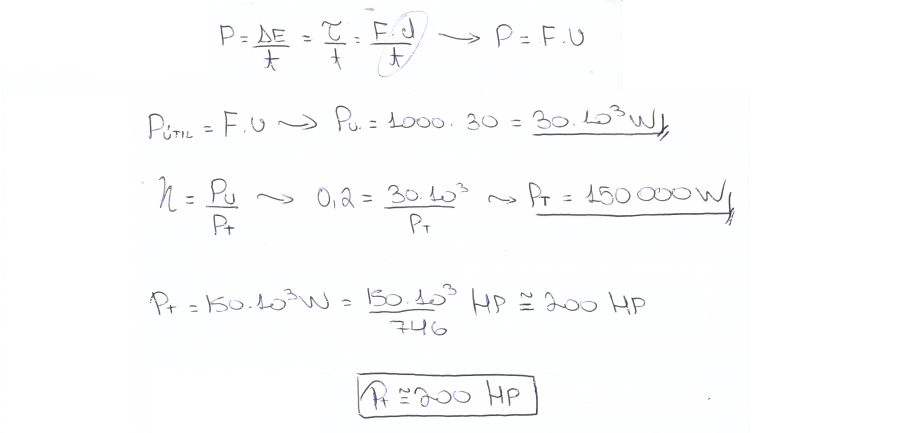 P = ΔE/t = τ/t = F.d/t → P = F.v
Pútil = F.v → Pu. = 1000. 30 = 30.10³ W
η = Pu/Pt → 0,2 = 30.10³/PT → PT = 150 000 W
Pt = 150.10³ W = 150.10³/746 HP ≅ 200 HP
Pt ≅ 200 HP